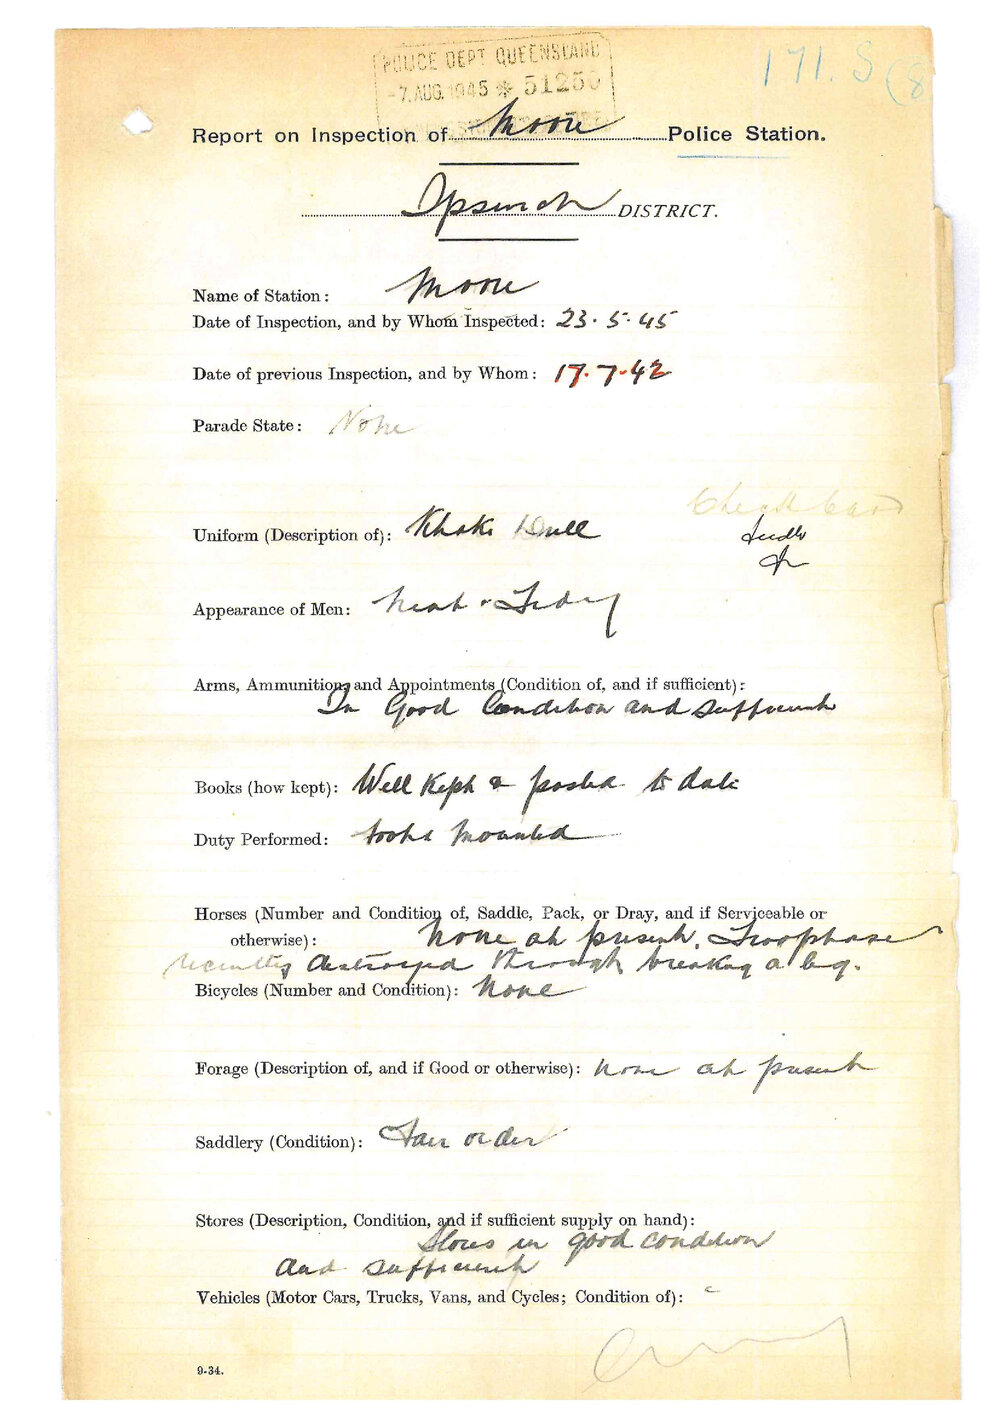 POLICE DEPT QUEENSLAND
171. S (8
-7. AUG. 1945 * 51250
Report on Inspection of Moore Police Station.
Ipswich DISTRICT.
Name of Station: Moore
Date of Inspection, and by Whom Inspected: 23.5.45
Date of previous Inspection, and by Whom: 17.7.42
Parade State: None
Uniform (Description of): Khaki Drill
Appearance of Men: Neat & Tidy
Arms, Ammunition, and Appointments (Condition of, and if sufficient):
In Good Condition and sufficient
Books (how kept): Well Kept & posted to date
Duty Performed: Foot & Mounted
Horses (Number and Condition of, Saddle, Pack, or Dray, and if Serviceable or
otherwise): None at present. Troophorse
recently destroyed through breaking a leg.
Bicycles (Number and Condition): None
Forage (Description of, and if Good or otherwise): None at present
Saddlery (Condition): Fair order
Stores (Description, Condition, and if sufficient supply on hand):
Stores in good condition
and sufficient
Vehicles (Motor Cars, Trucks, Vans, and Cycles; Condition of):
9-34.